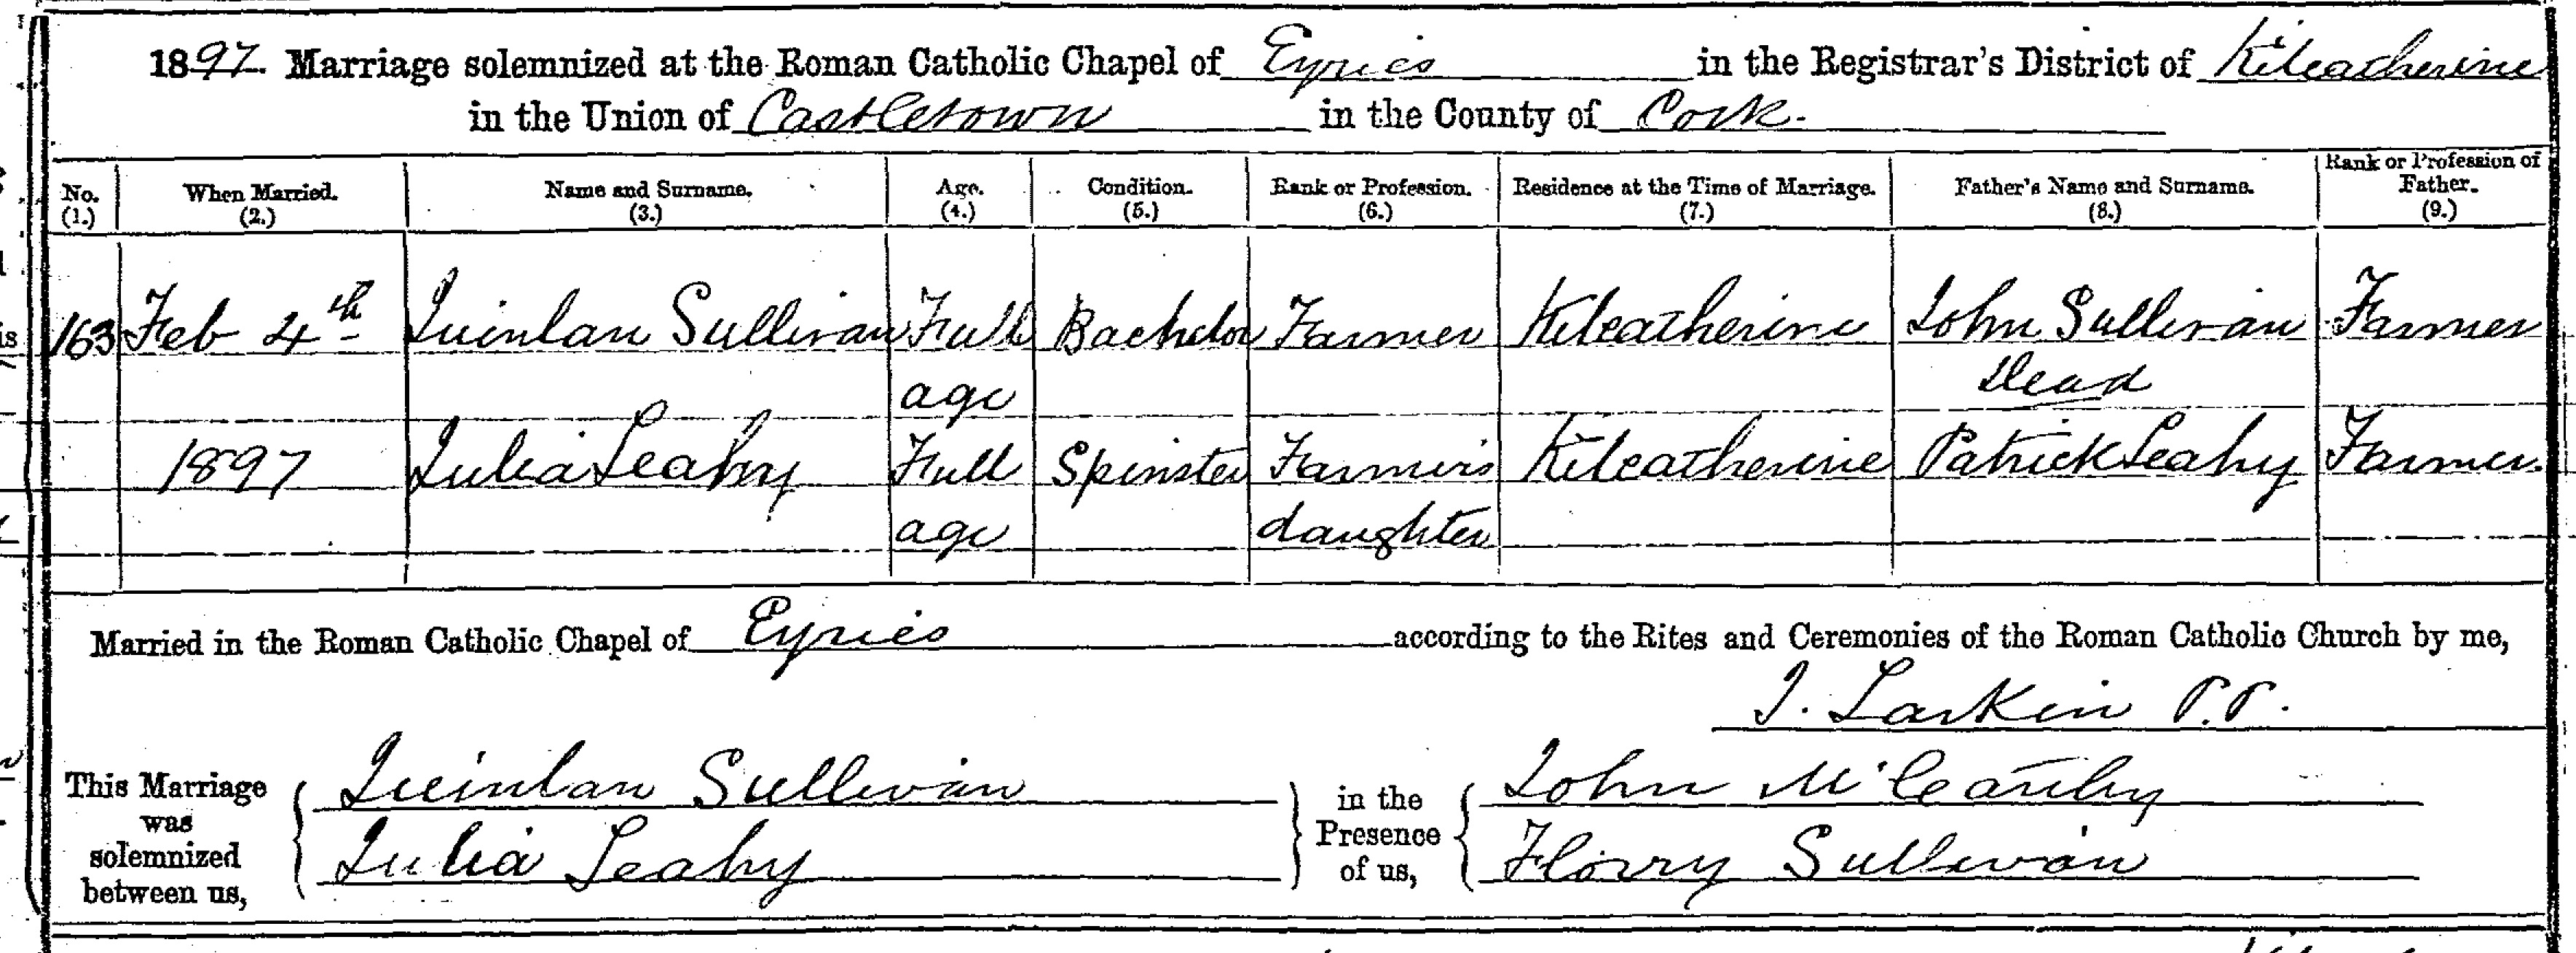 1897. Marriage solemnized at the Roman Catholic Chapel of Eyries in the Registrar's District of Kilcatherine
in the Union of Castletown in the County of Cork.
No. (1.) When Married. (2.) Name and Surname. (3.) Age. (4.) Condition. (5.) Rank or Profession. (6.) Residence at the Time of Marriage. (7.) Father's Name and Surname. (8.) Rank or Profession of Father. (9.)
163 Feb 4th Quinlan Sullivan Full Bachelor Farmer Kilcatherine John Sullivan Farmer
age Dead
1897 Julia Leahy Full Spinster Farmer's Kilcatherine Patrick Leahy Farmer.
age daughter
Married in the Roman Catholic Chapel of Eyries according to the Rites and Ceremonies of the Roman Catholic Church by me,
J. Larkin P.P.
This Marriage was solemnized between us, Quinlan Sullivan in the Presence of us, John McCarthy
Julia Leahy Florry Sullivan